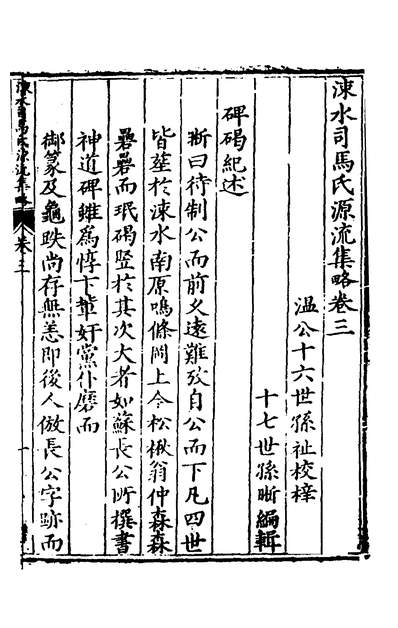 涑水司馬氏源流集略卷三
溫公十六世孫祉校梓
十七世孫晰編輯
碑碣紀述
晰曰待制公而前乆遠難攷自公而下凡四世
皆塟於涑水南原鳴條岡上今松楸翁仲森森
纍纍而珉碣竪於其次大者如蘇長公所撰書
神道碑雖為惇卞軰奸黨仆磨而
御篆及龜趺尚存無恙即後人倣長公字跡而
涑水司馬氏源流集略
卷三
一